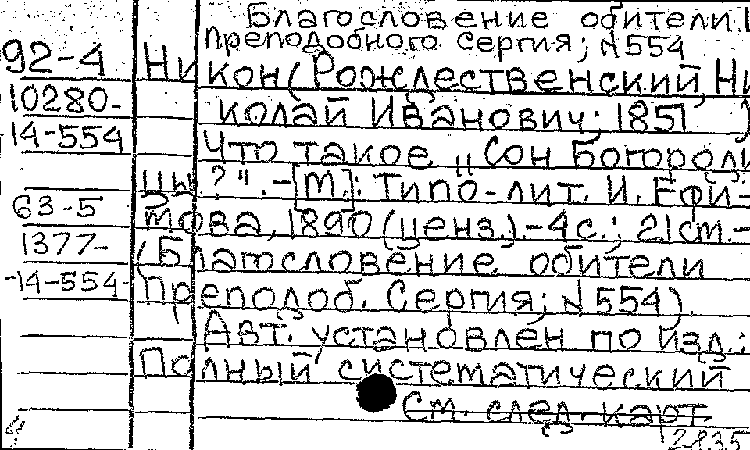 Благословение обители
преподобного Сергия; №554
92-4 Никон (РожДественский, Ни
10280- колай Иванович; 1851 )
14-554 Что такое „Сон Богороди
цы?". - [М.]: Типо-лит. И. Ефи-
63-5 мова, 1890 (ценз.). - 4с.; 21см. -
1377- (Благословение обители
-14-554- Преподоб. Сергия; №554).
Авт. установлен по изд.:
Полный систематический
См. след. карт.
2835